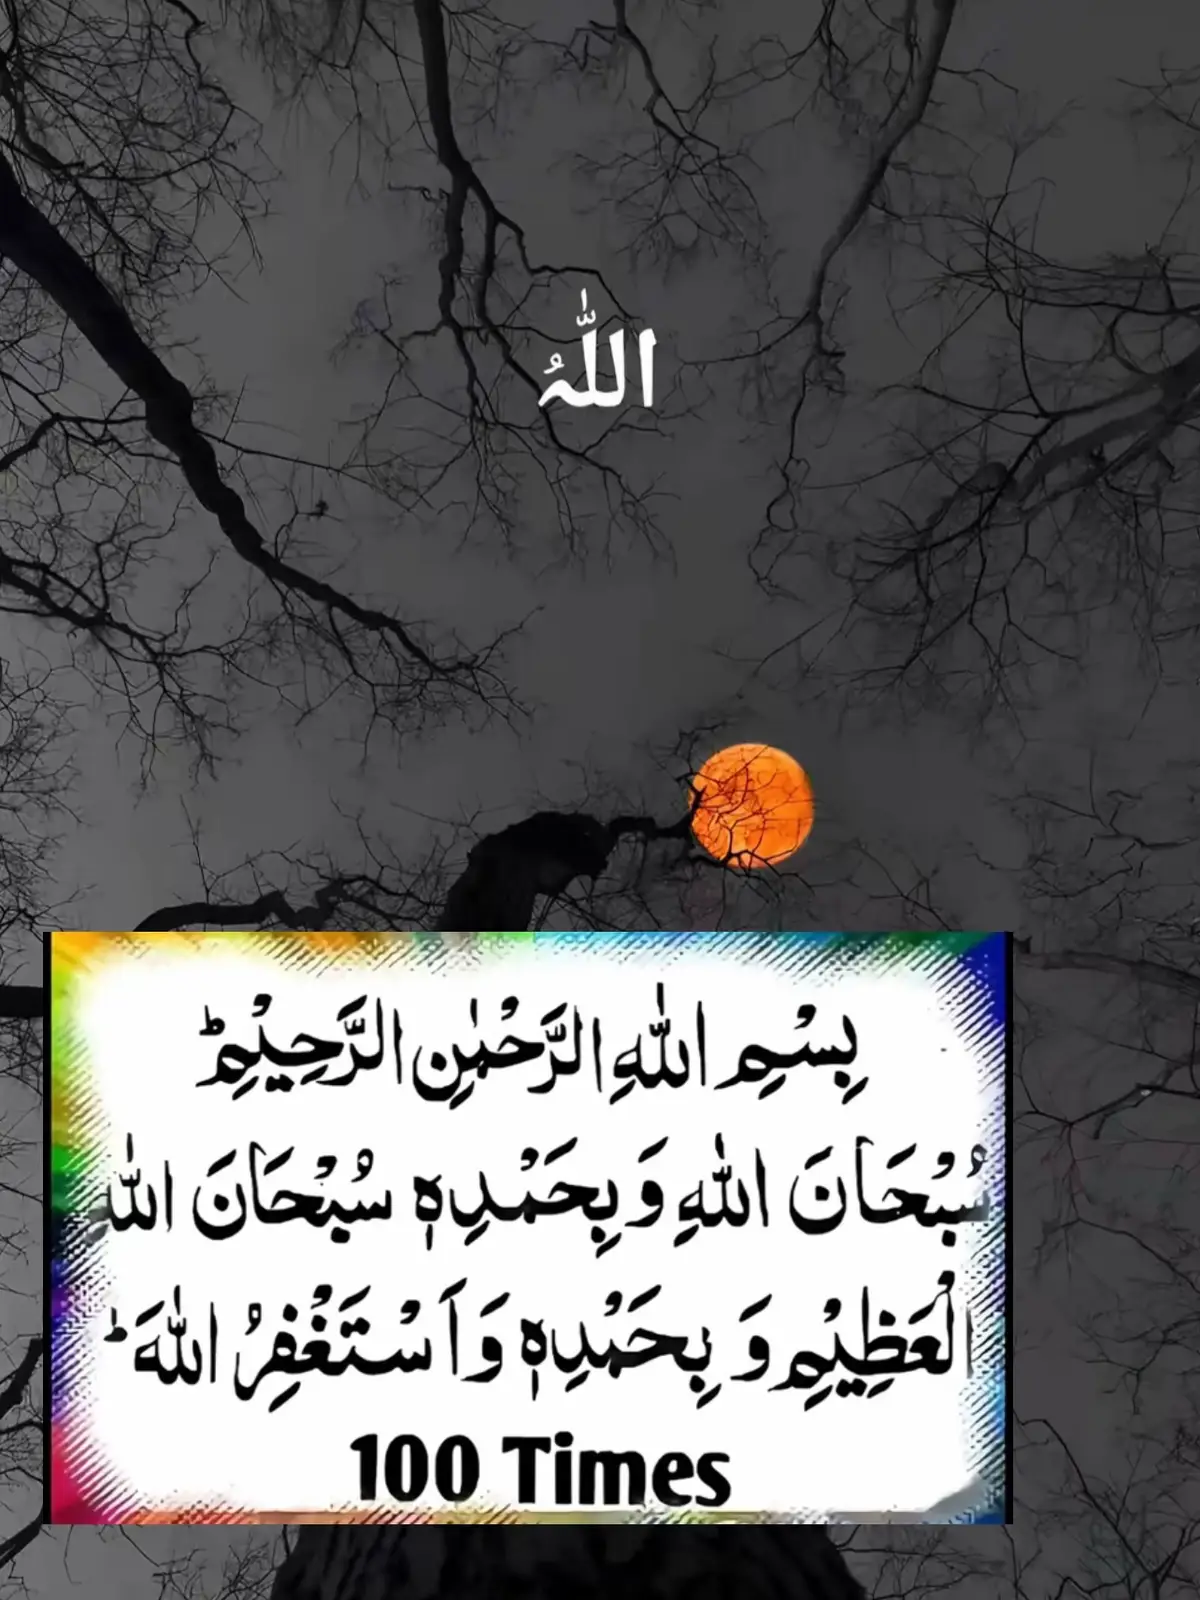 اللّٰہُ
بِسْمِ اللّٰهِ الرَّحْمٰنِ الرَّحِيْمِؕ
سُبْحَانَ اللّٰهِ وَ بِحَمْدِهٖ سُبْحَانَ اللّٰهِ
الْعَظِيْمِ وَ بِحَمْدِهٖ وَاَسْتَغْفِرُ اللّٰهَؕ
100 Times